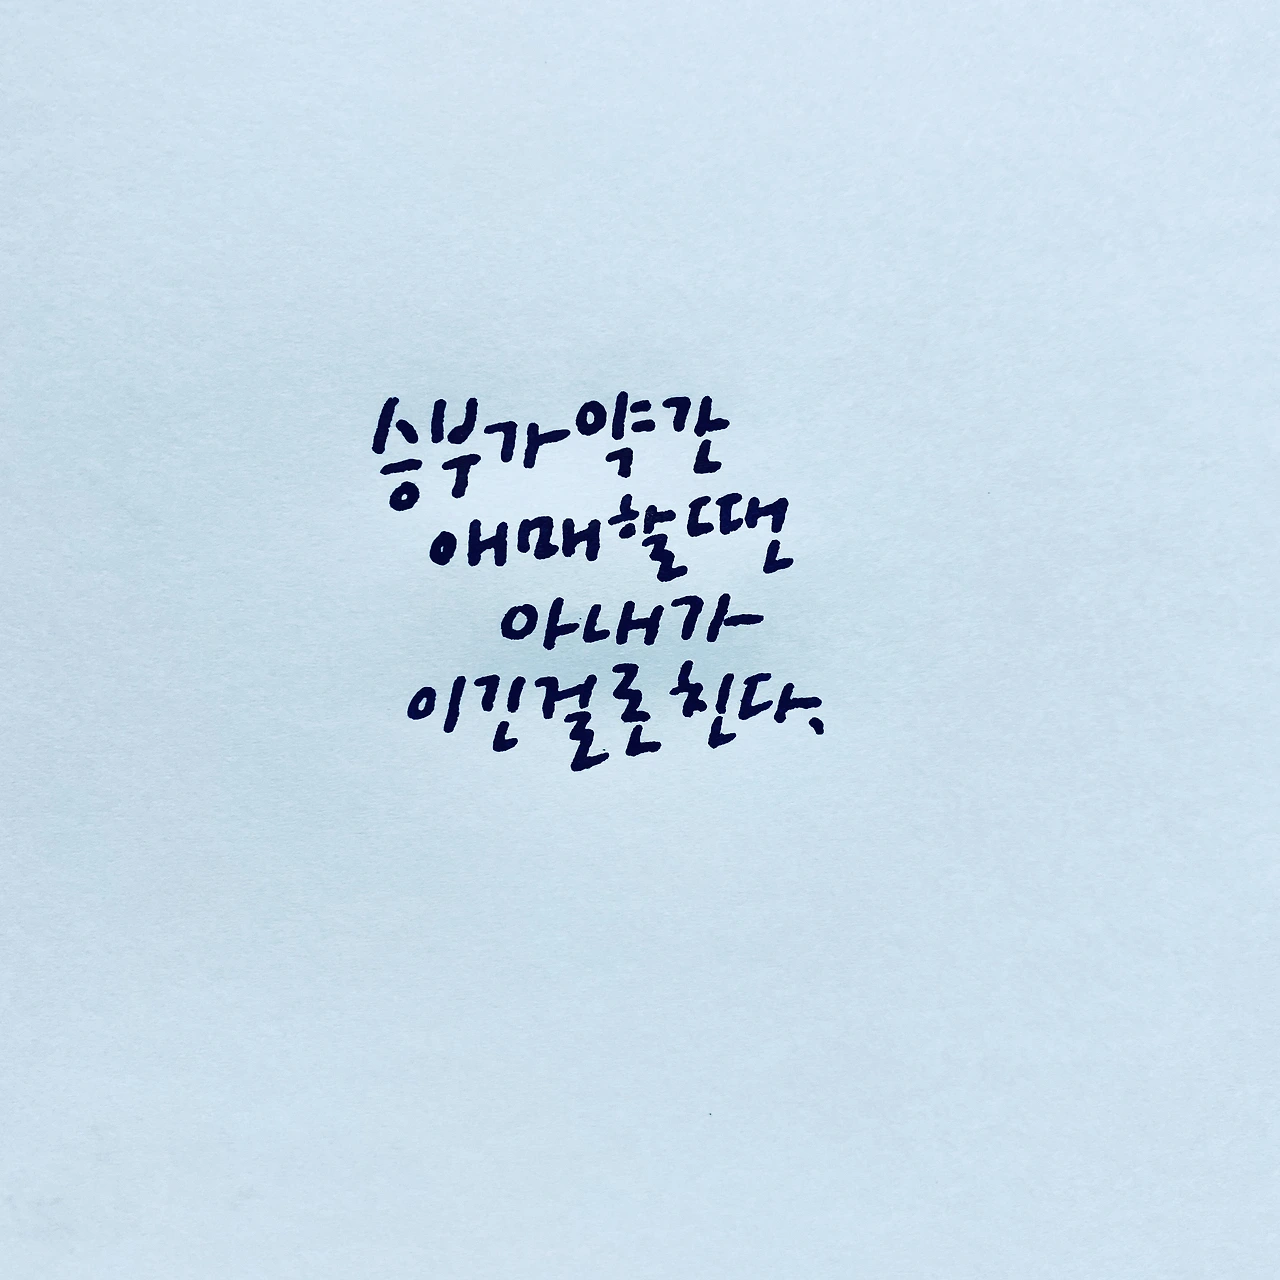 승부가 약간
애매할 땐
아내가
이긴걸론 친다.